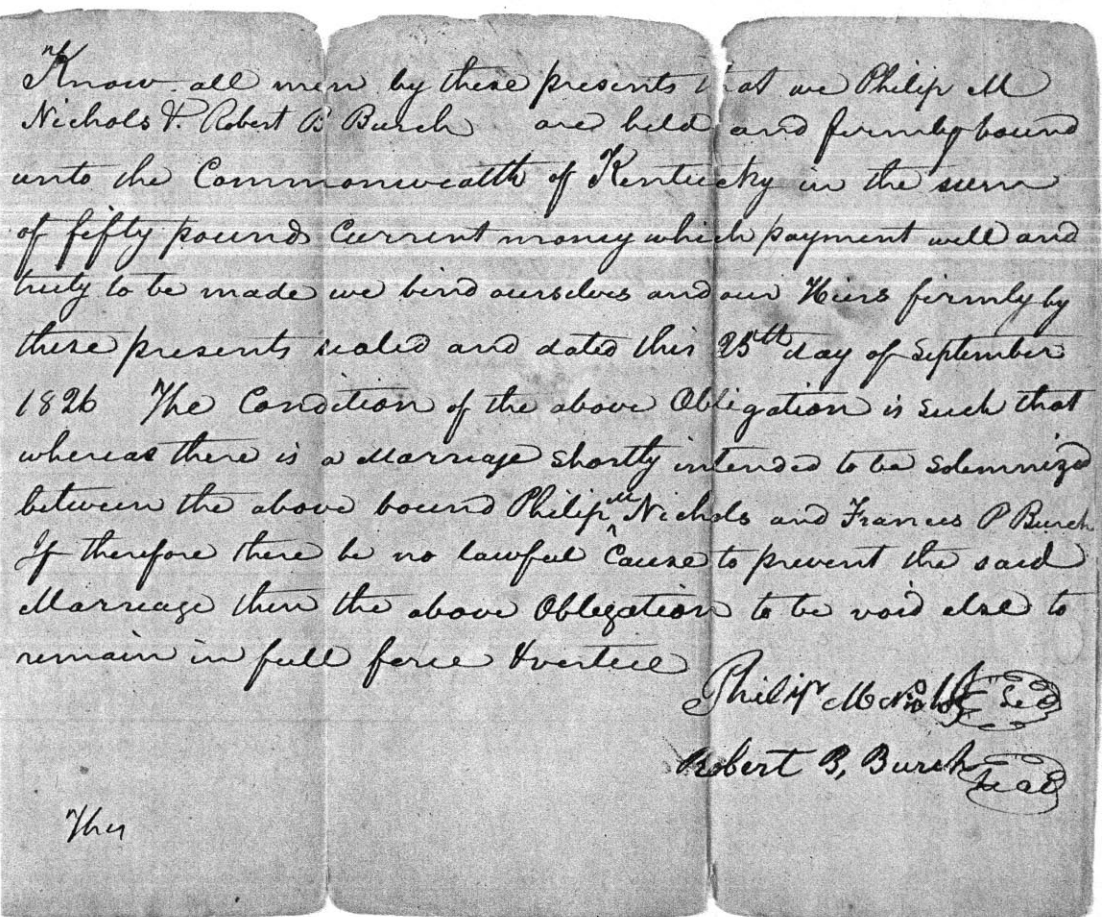 Know all men by these presents that we Philip M
Nichols & Robert B Burch are held and firmly bound
unto the Commonwealth of Kentucky in the sum
of fifty pound Current money which payment well and
truly to be made we bind ourselves and our Heirs firmly by
these presents sealed and dated this 25th day of September
1826 The Condition of the above Obligation is Such that
whereas there is a Marriage shortly intended to be Solemnizd
between the above bound Philip M Nichols and Frances P Burch
If therefore there be no lawful Cause to prevent the said
Marriage then the above Obligation to be void else to
remain in full force & vertue
Philip M Nichols Seal
Robert B, Burch Seal